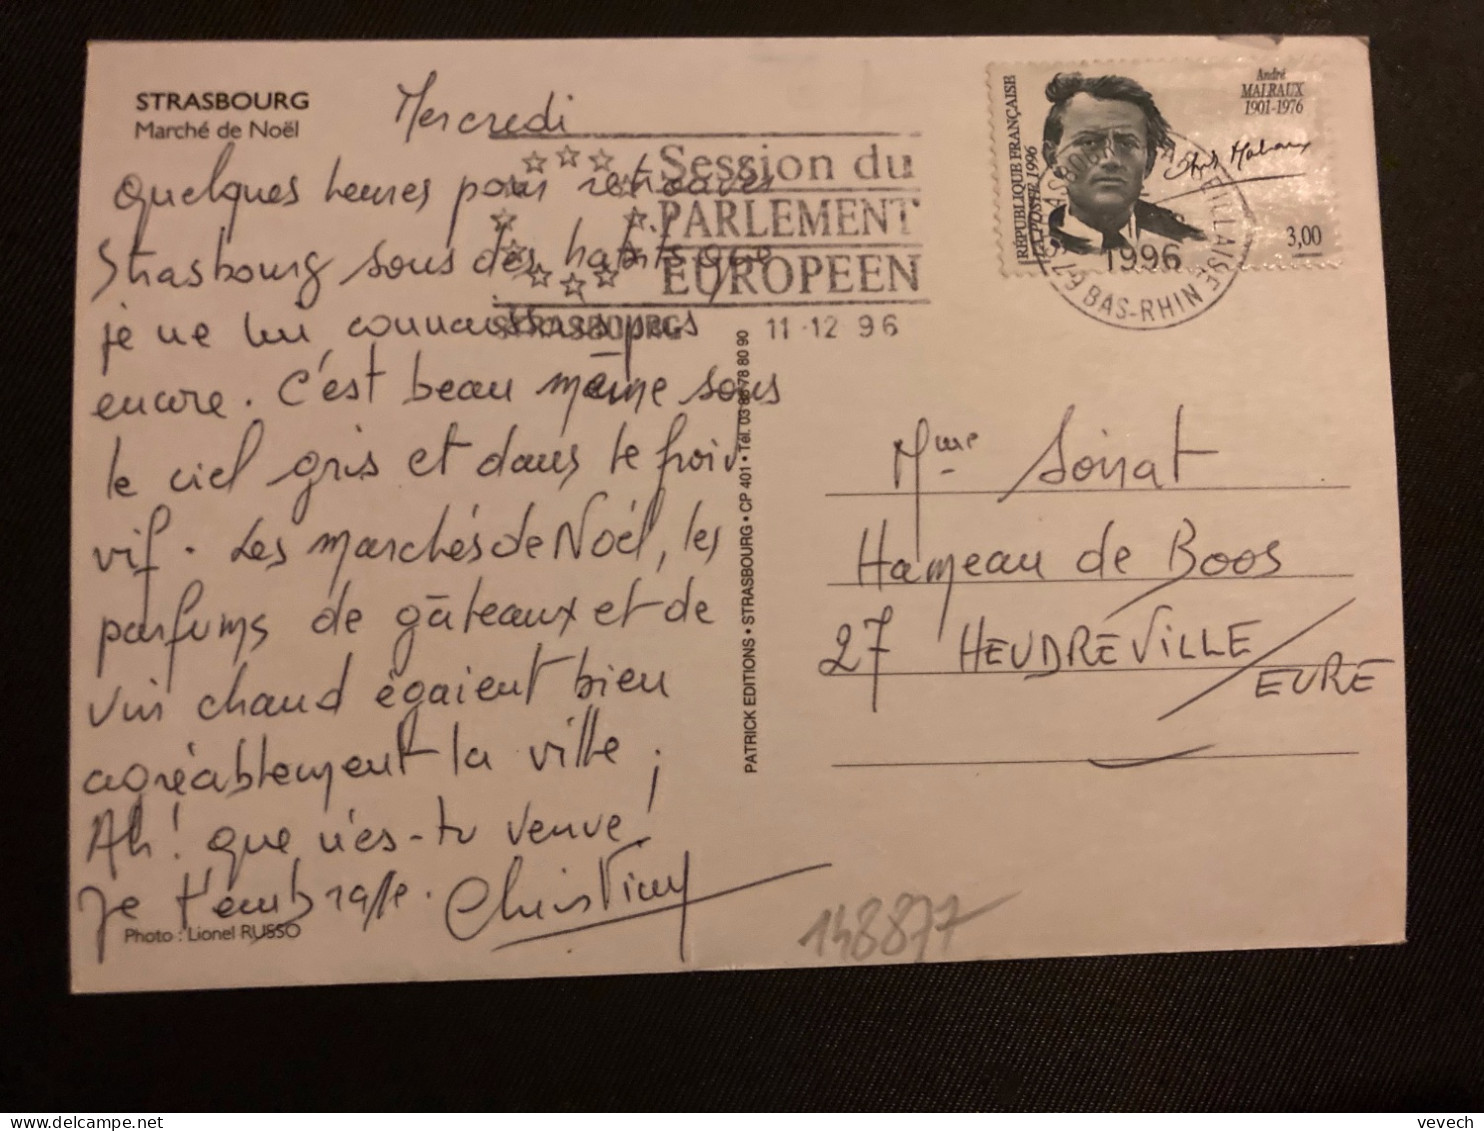 STRASBOURG
Marché de Noël
Mercredi
Quelques heures pour retrouver
Strasbourg sous des habits que
je ne lui connaissais pas
encore. C'est beau même sous
le ciel gris et dans le froid
vif. Les marchés de Noël, les
parfums de gâteaux et de
vin chaud égaient bien
agréablement la ville ;
Ah ! que n'es-tu venue !
Je t'embrasse.
Photo : Lionel RUSSO
Session du
PARLEMENT
EUROPEEN
STRASBOURG
11-12 96
PATRICK EDITIONS • STRASBOURG • CP 401 • Tél. 03 88 78 80 90
RÉPUBLIQUE FRANÇAISE
LA POSTE 1996
André
MALRAUX
1901-1976
3,00
1996
67 BAS-RHIN
Mme Soirat
Hameau de Boos
27 HEUDREVILLE / EURE
148877
vevech